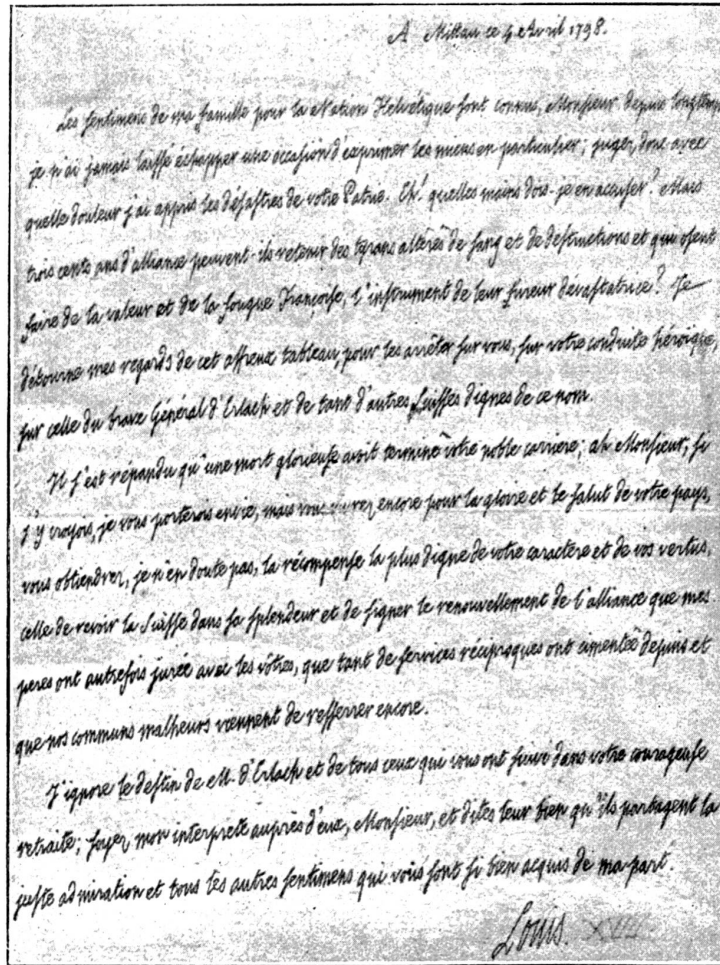 A Mittau ce 4 Avril 1798.
Les sentimens de ma famille pour la Nation Helvétique sont connus, Monsieur, depuis longtems,
je n'ai jamais laissé échapper une occasion d'exprimer les miens en particulier; jugez donc avec
quelle douleur j'ai appris les désastres de votre Patrie. Eh! quelles mains dois-je en accuser? Mais
trois cents ans d'alliance peuvent-ils retenir des tyrans altérés de sang et de destructions et qui osent
faire de la valeur et de la fougue Françoise, l'instrument de leur fureur dévastatrice? Je
détourne mes regards de cet affreux tableau, pour les arrêter sur vous, sur votre conduite héroïque,
sur celle du brave Général d'Erlach et de tant d'autres Suisses dignes de ce nom.
Il s'est répandu qu'une mort glorieuse avoit terminé votre noble carriere; ah Monsieur, si
j'y croyois, je vous porterois envie, mais vous vivrez encore pour la gloire et le salut de votre pays,
vous obtiendrez, je n'en doute pas, la récompense la plus digne de votre caractere et de vos vertus,
celle de revoir la Suisse dans sa splendeur et de signer le renouvellement de l'alliance que mes
peres ont autrefois jurée avec les vôtres, que tant de services réciproques ont cimentée depuis et
que nos communs malheurs viennent de resserrer encore.
J'ignore le destin de M. d'Erlach et de tous ceux qui vous ont suivi dans votre courageuse
retraite; soyez mon interprete auprès d'eux, Monsieur, et dites leur bien qu'ils partagent la
juste admiration et tous les autres sentimens qui vous sont si bien acquis de ma part.
Louis. XVIII